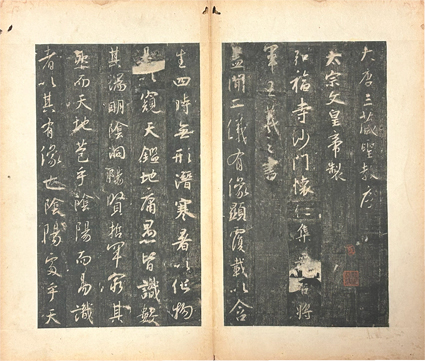 大唐三藏聖教序
太宗文皇帝製
弘福寺沙門懷仁集晉右將
軍王羲之書
蓋聞二儀有像顯覆載以含
生四時無形潛寒暑以化物
是以窺天鑑地庸愚皆識數
其端明陰洞陽賢哲罕窮其
然而天地苞乎陰陽而易識
者以其有像也陰陽處乎天